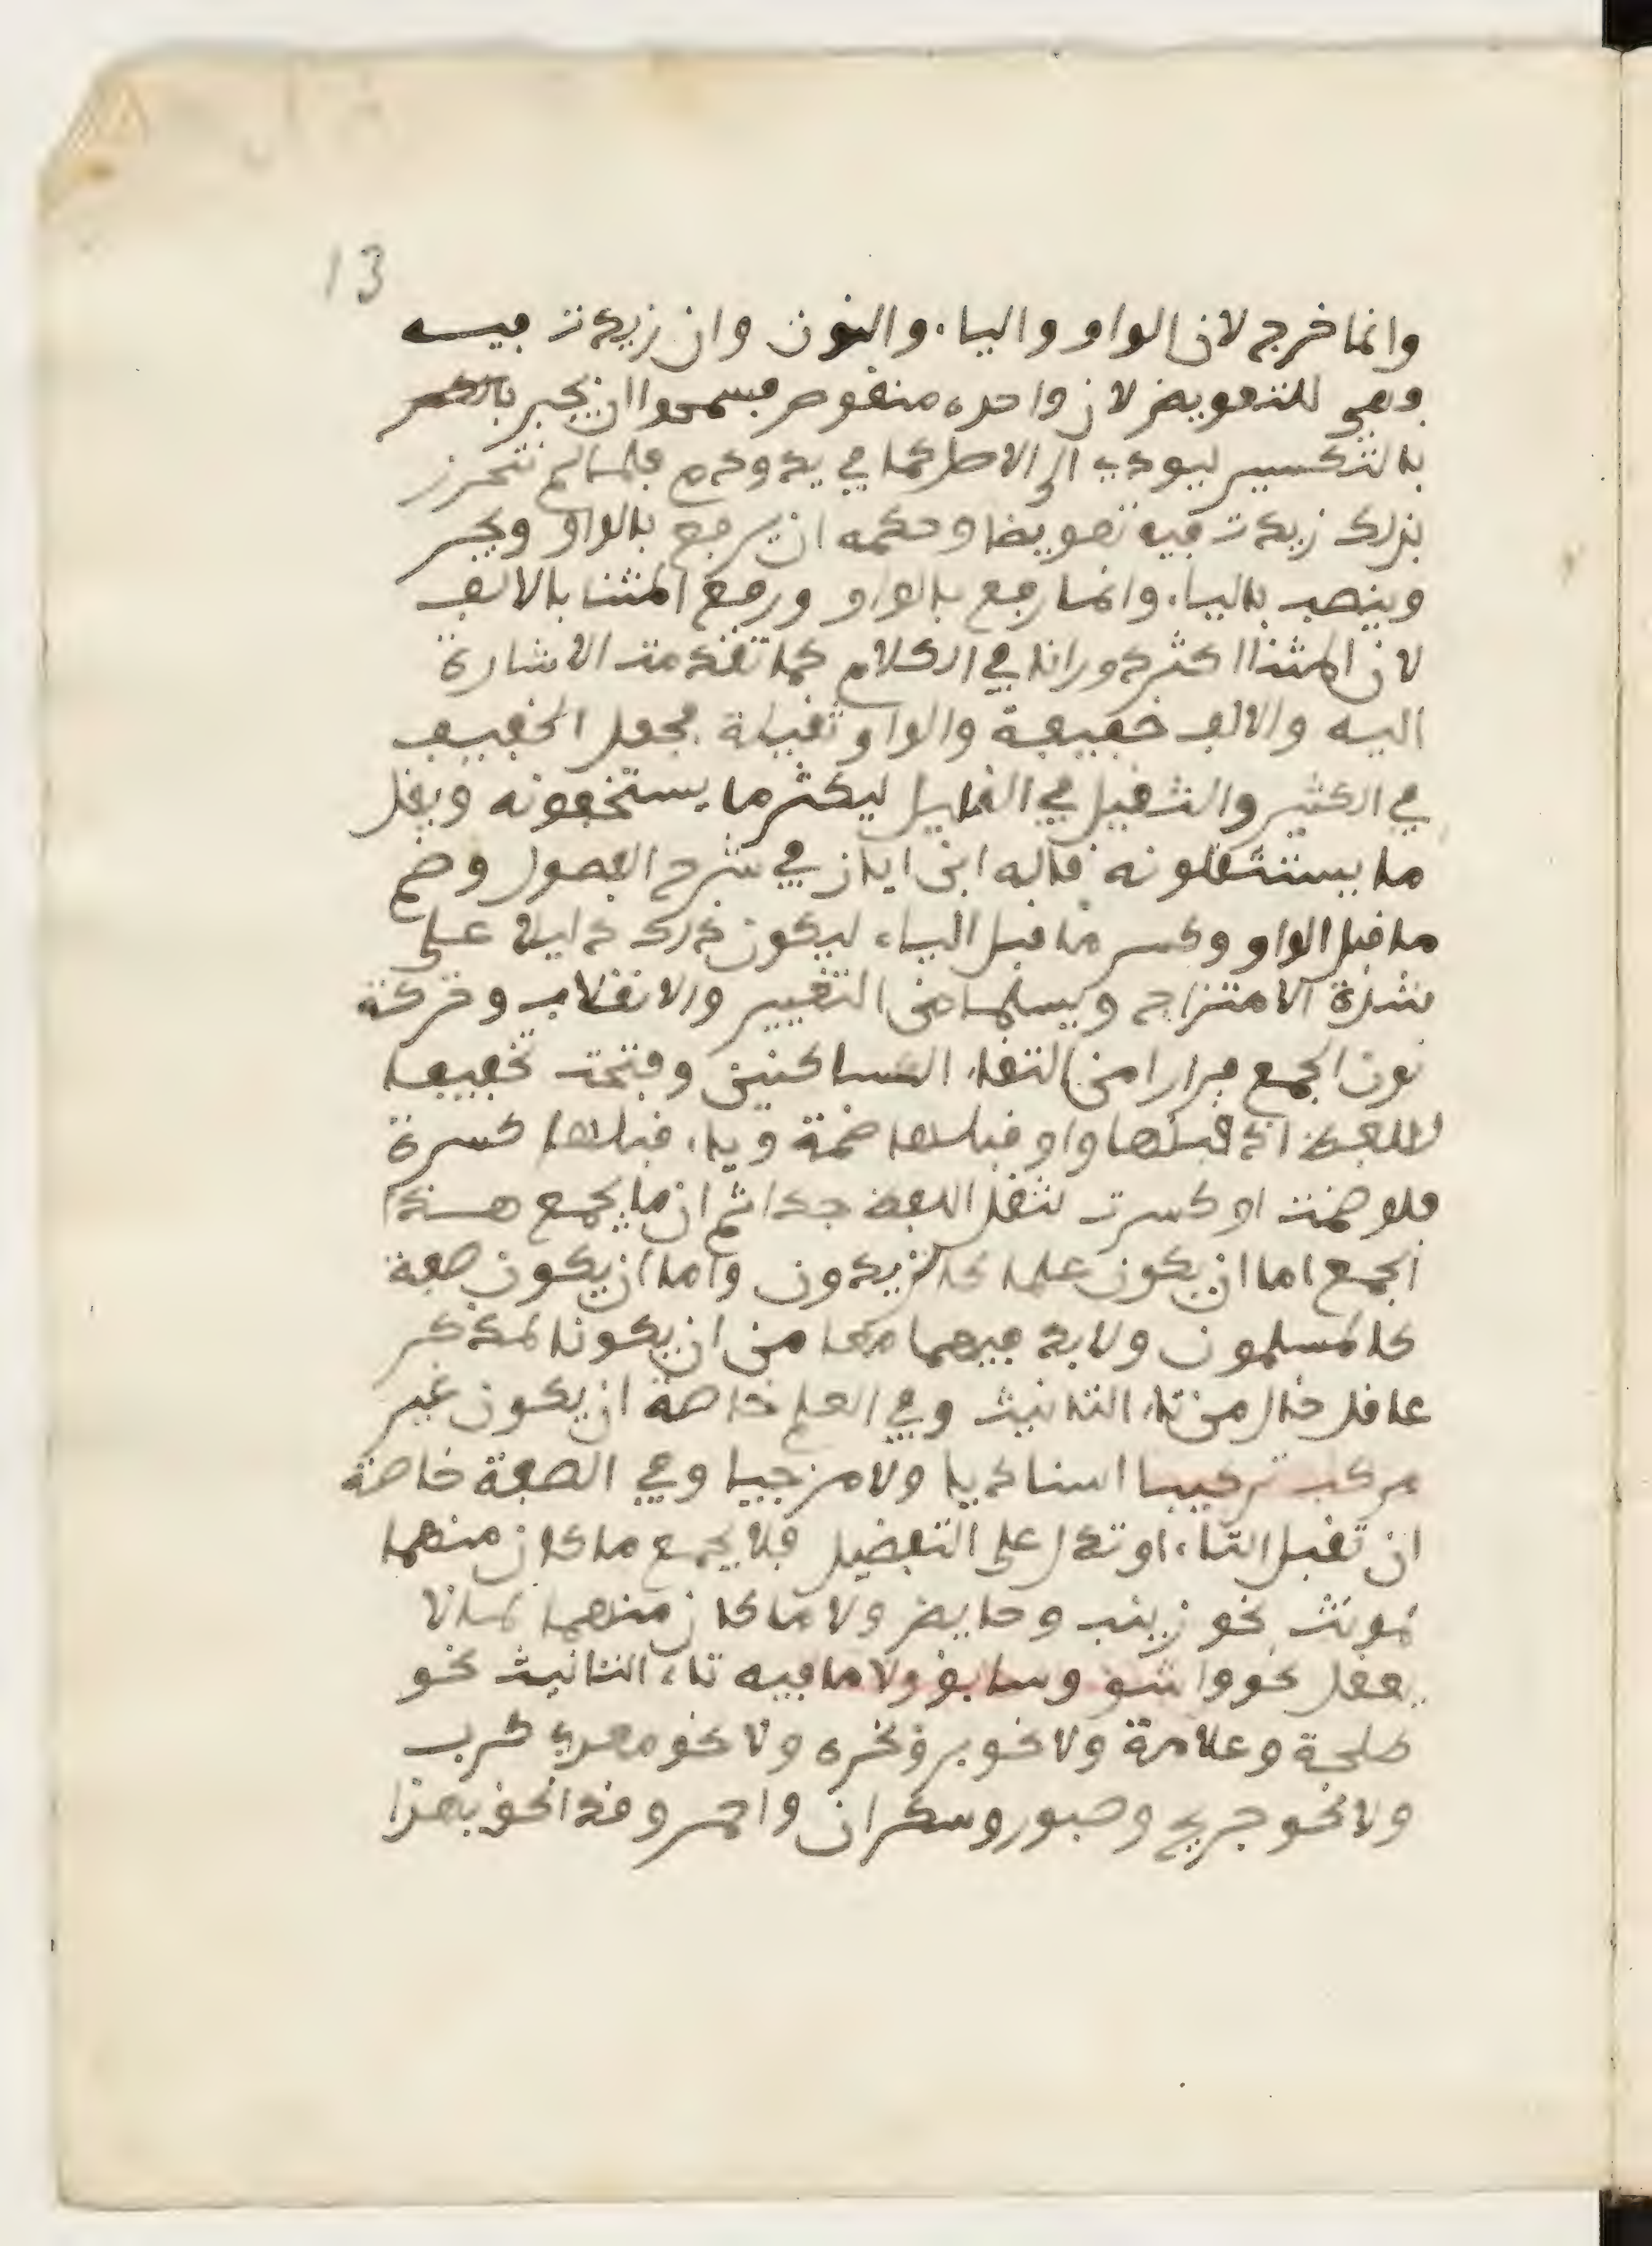 13
وانما خرج لان الواو والياء والنون وان زيدت فيه
وهي للتعويض لان واحده منقوص فسمحوا ان يجبر
بالتكسير ليودي الى الاصل كما في يد ودم فلما لم تتحرز
بذلك زيدت فيه تعويضا وحكمه ان يرفع بالواو ويجر
وينصب بالياء وانما رفع بالواو ورفع المثنا بالالف
لان المثنا اكثر دورانا في الكلام كما تقدمت الاشارة
اليه والالف خفيفة والواو ثقيلة فجعل الخفيف
في الكثير والثقيل في القليل ليكثر ما يستخفونه ويقل
ما يستثقلونه قاله ابن اياز في شرح الفصول وضم
ما قبل الواو وكسر ما قبل الياء ليكون ذلك دليلا على
شدة الامتزاج ويسلما من التغيير والانقلاب وحركة
نون الجمع فرارا من التقاء الساكنين وفتحت تخفيفا
للفظ اذ قبلها واو قبلها ضمة وياء قبلها كسرة
فلو ضمت او كسرت لثقل اللفظ جدا ثم ان ما يجمع هذا
الجمع اما ان يكون علما كالزيدون واما ان يكون صفة
كالمسلمون ولا بد فيهما معا من ان يكونا لمذكر
عاقل خال من تاء التانيث وفي العلم خاصة ان يكون غير
مركب تركيبا اسناديا ولا مزجيا وفي الصفة خاصة
ان تقبل التاء او تدل على التفضيل فلا يجمع ما كان منهما
لمونث نحو زينب وحايض ولا ما كان منهما لما لا
يعقل نحو واشق وسابق ولا ما فيه تاء التانيث نحو
طلحة وعلامة ولا نحو برق نحره ولا نحو معدي كرب
ولا نحو جريح وصبور وسكران واحمر وقد الحق بهذا